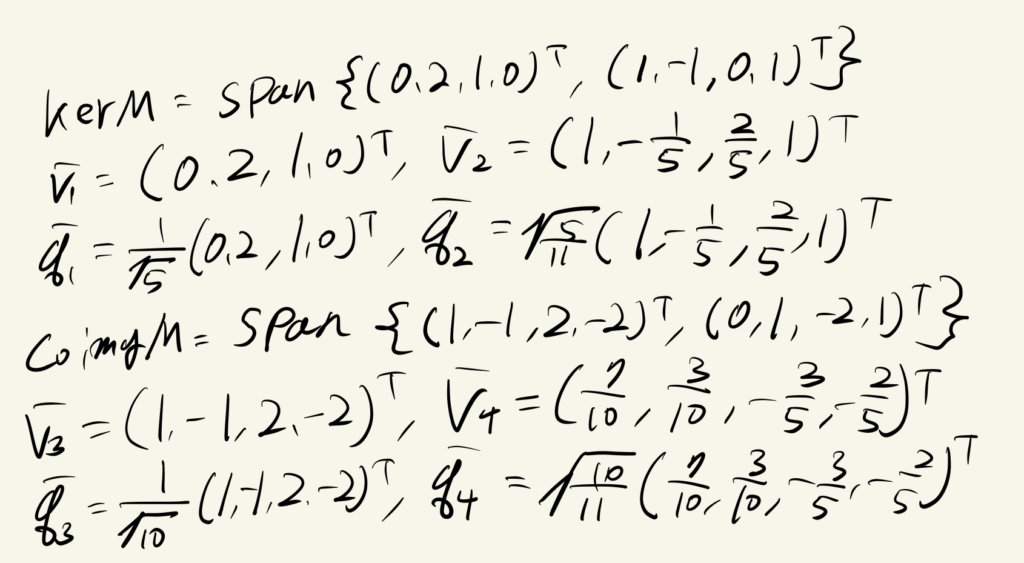 ker M = span {(0.2,1.0)ᵀ, (1.-1,0.1)ᵀ}
v̄₁ = (0.2,1,0)ᵀ, v̄₂ = (1,-1/5,2/5,1)ᵀ
q̄₁ = 1/√5 (0.2,1,0)ᵀ, q̄₂ = √(5/11) (1,-1/5,2/5,1)ᵀ
coimg M = span {(1,-1,2.-2)ᵀ, (0,1,-2,1)ᵀ}
v̄₃ = (1.-1,2.-2)ᵀ, v̄₄ = (7/10,3/10,-3/5,-2/5)ᵀ
q̄₃ = 1/√10 (1,-1,2.-2)ᵀ, q̄₄ = √(10/11) (7/10,3/10,-3/5,-2/5)ᵀ